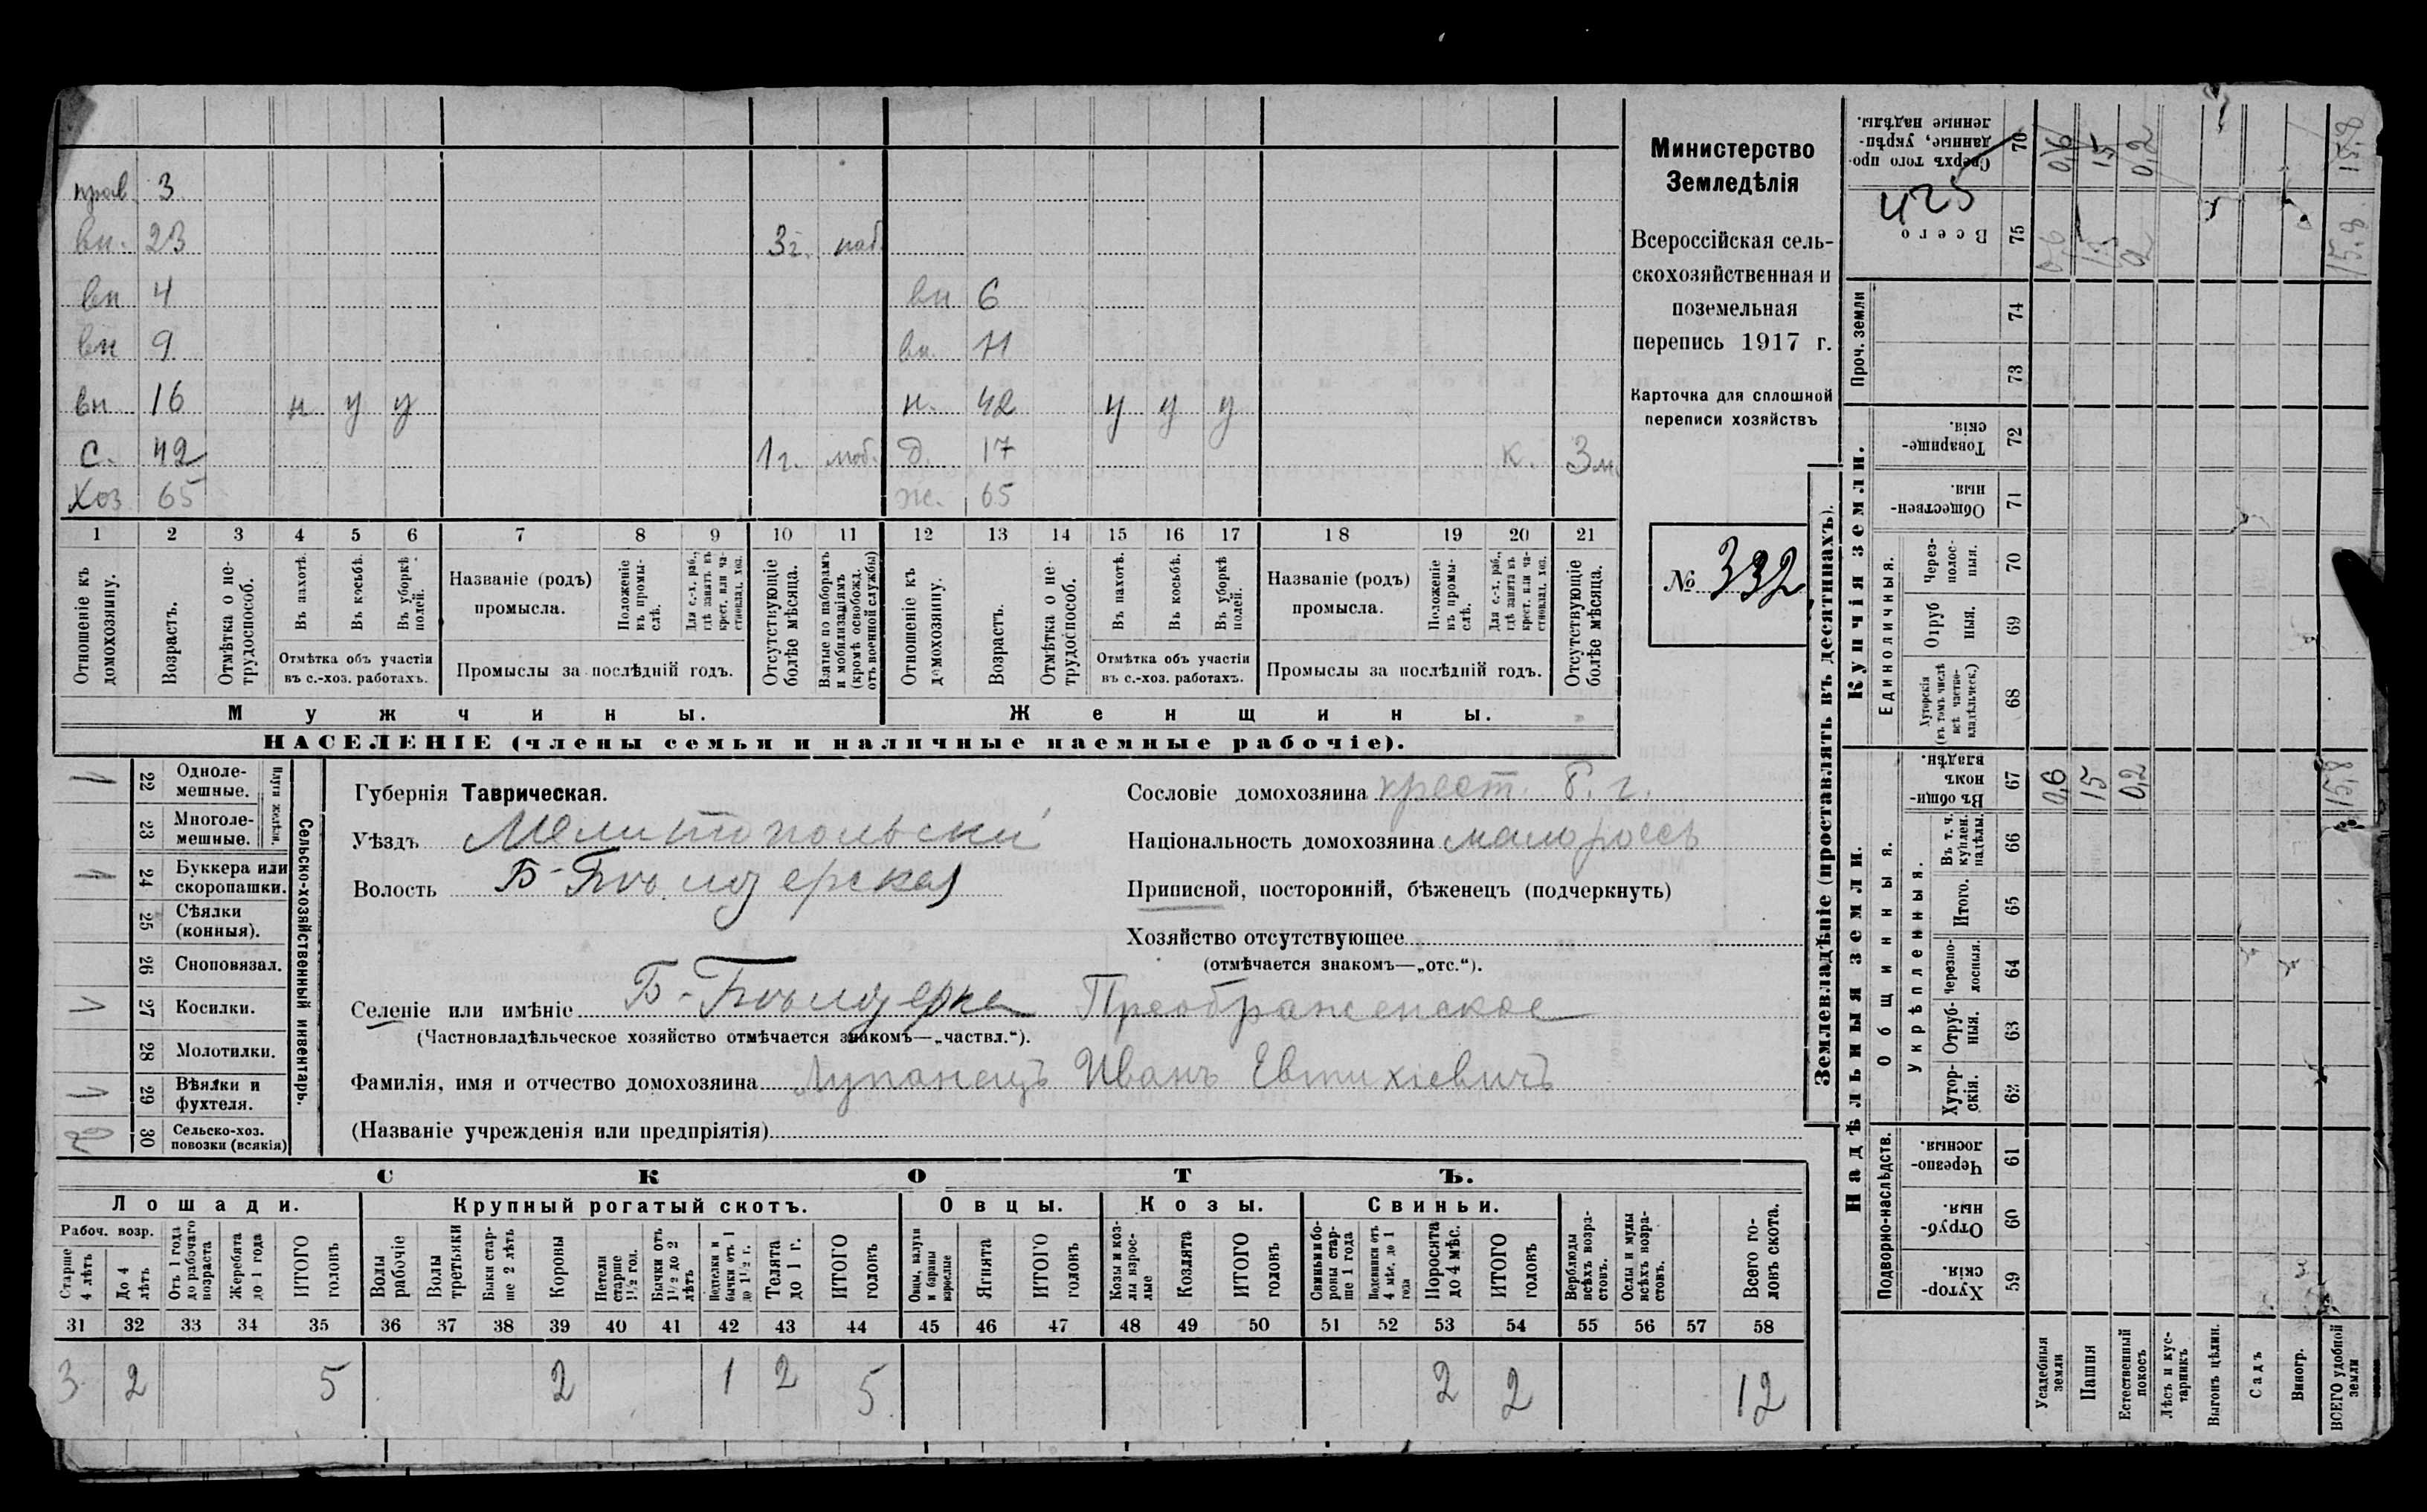 прав. 3
вн. 23 3 г. наб.
вн 4 вн 6
вн 9 вн. 11
вн 16 н у у н. 42 у у у
с. 42 1 г. моб. д. 17 к. 3 м.
Хоз 65 ж. 65
1 2 3 4 5 6 7 8 9 10 11 12 13 14 15 16 17 18 19 20 21
Отношеніе къ домохозяину.
Возрастъ.
Отмѣтка о не-трудоспособ.
Въ пахотѣ.
Въ косьбѣ.
Въ уборкѣ полей.
Отмѣтка объ участіи
въ с.-хоз. работахъ.
Названіе (родъ)
промысла.
Положеніе въ промы-слѣ.
Для с.-х. раб., гдѣ занятъ въ крест. или ча-стновлад. хоз.
Промыслы за послѣдній годъ.
Отсутствующіе болѣе мѣсяца.
Взятые по наборамъ и мобилизаціямъ (кромѣ освобожд. отъ военной службы)
Отношеніе къ домохозяину.
Возрастъ.
Отмѣтка о не-трудоспособ.
Въ пахотѣ.
Въ косьбѣ.
Въ уборкѣ полей.
Отмѣтка объ участіи
въ с.-хоз. работахъ.
Названіе (родъ)
промысла.
Положеніе въ промы-слѣ.
Для с.-х. раб., гдѣ занята въ крест. или ча-стновлад. хоз.
Промыслы за послѣдній годъ.
Отсутствующіе болѣе мѣсяца.
Мужчины. Женщины.
НАСЕЛЕНІЕ (члены семьи и наличные наемные рабочіе).
Министерство
Земледѣлія
Всероссійская сель-
скохозяйственная и
поземельная
перепись 1917 г.
Карточка для сплошной
переписи хозяйствъ
№ 332
Сельско-хозяйственный инвентарь.
Плуги желѣзн.
1 22 Одноле-
мешные.
23 Многоле-
мешные.
1 24 Буккера или
скоропашки.
25 Сѣялки
(конныя).
26 Сноповязал.
1 27 Косилки.
28 Молотилки.
1 29 Вѣялки и
фухтеля.
2 30 Сельско-хоз.
повозки (всякія)
Губернія Таврическая.
Уѣздъ Мелитопольскій
Волость Б-Бѣлозерская
Сословіе домохозяина крест. б. г.
Національность домохозяина малороссъ
Приписной, посторонній, бѣженецъ (подчеркнуть)
Хозяйство отсутствующее
(отмѣчается знакомъ—„отс.“).
Селеніе или имѣніе Б-Бѣлозерка Преображенское
(Частновладѣльческое хозяйство отмѣчается знакомъ—„частвл.“).
Фамилія, имя и отчество домохозяина Лупанецъ Иванъ Евтихіевичъ
(Названіе учрежденія или предпріятія)
СКОТЪ.
Лошади. Крупный рогатый скотъ. Овцы. Козы. Свиньи.
Рабоч. возр.
Старше 4 лѣтъ
До 4 лѣтъ
Отъ 1 года до рабочаго возраста
Жеребята до 1 года
ИТОГО головъ
Волы рабочіе
Волы третьяки
Быки стар-ше 2 лѣтъ
Коровы
Нетели старше 1½ год.
Бычки отъ 1½ до 2 лѣтъ
Подтелки и бычки отъ 1 до 1½ г.
Телята до 1 г.
ИТОГО головъ
Овцы, валухи и бараны взрослые
Ягнята
ИТОГО головъ
Козы и коз-лы взрос-лые
Козлята
ИТОГО головъ
Свиньи и бо-ровы стар-ше 1 года
Подсвинки отъ 4 мѣс. до 1 года
Поросята до 4 мѣс.
ИТОГО головъ
Верблюды всѣхъ возра-стовъ.
Ослы и мулы всѣхъ возра-стовъ.
Всего го-ловъ скота.
31 32 33 34 35 36 37 38 39 40 41 42 43 44 45 46 47 48 49 50 51 52 53 54 55 56 57 58
3 2 5 2 1 2 5 2 2 12
Землевладѣніе (проставлять въ десятинахъ).
Надѣльныя земли.
Купчія земли.
Проч. земли
Подворно-наслѣдств.
Общинныя.
Укрѣпленныя.
Единоличныя.
Хутор-скія. 59
Отруб-ныя. 60
Черезпо-лосныя. 61
Хутор-скія. 62
Отруб-ныя. 63
Черезпо-лосныя. 64
Итого. 65
Въ т. ч. куплен. надѣлы. 66
Въ общи-номъ владѣн. 67
Хуторскія (въ томъ числѣ всѣ частно-владѣльческ.) 68
Отруб ныя. 69
Через-полос-ныя. 70
Обществен-ныя. 71
Товарище-скія. 72
73
74
Всего 75
425
Сверхъ того про-данные, укрѣп-ленные надѣлы. 76
Усадебныя земли 0,6 0,6 0,6
Пашня 15 15 15
Естественный покосъ 0,2 0,2 0,2
Лѣсъ и кус-тарникъ
Выгонъ цѣлин.
Садъ
Виногр.
ВСЕГО удобной земли 15,8 15,8 15,8